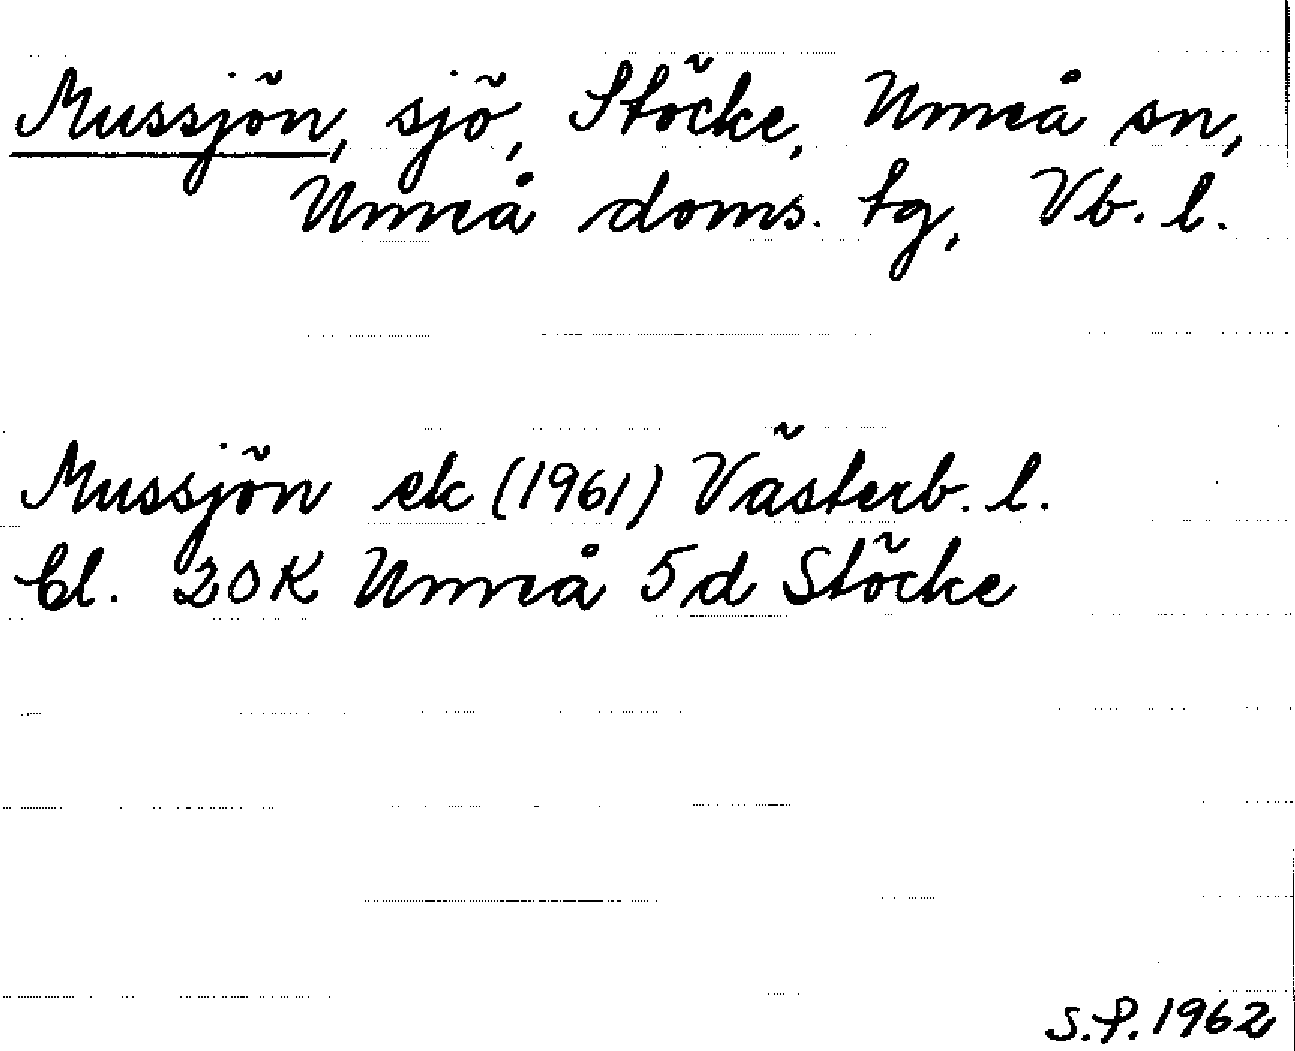 Mussjön, sjö, Stöcke, Umeå sn,
Umeå doms. tg, Vb. l.
Mussjön ek (1961) Västerb. l.
bl. 20K Umeå 5d Stöcke
S.P. 1962